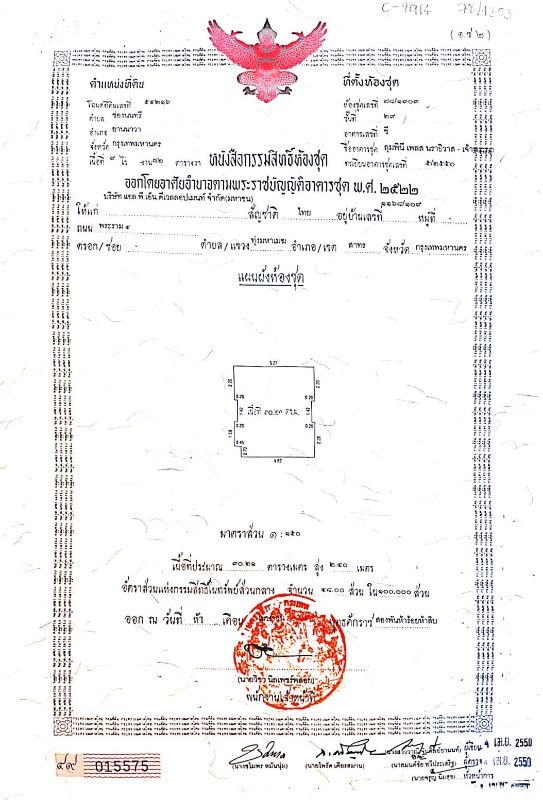 C-2914 78/1303
(อ.ช ๒)
ตำแหน่งที่ดิน
ที่ตั้งห้องชุด
โฉนดที่ดินเลขที่ ๕๔๒๑๖
ห้องชุดเลขที่ ๗๘/๑๓๐๓
ตำบล ช่องนนทรี
ชั้นที่ ๒๙
อำเภอ ยานนาวา
อาคารเลขที่ ซี
จังหวัด กรุงเทพมหานคร
ชื่ออาคารชุด ลุมพินี เพลส นราธิวาส - เจ้าพระยา
เนื้อที่ ๙ ไร่ งาน ตารางวา
หนังสือกรรมสิทธิ์ห้องชุด
ทะเบียนอาคารชุดเลขที่ ๕/๒๕๕๐
ออกโดยอาศัยอำนาจตามพระราชบัญญัติอาคารชุด พ.ศ. ๒๕๒๒
บริษัท แอล.พี.เอ็น.ดีเวลลอปเมนท์ จำกัด(มหาชน)
ให้แก่ สัญชาติ ไทย อยู่บ้านเลขที่ ๑๑๖๘/๑๐๙ หมู่ที่ -
ถนน พระราม ๔
ตรอก/ซอย - ตำบล/แขวง ทุ่งมหาเมฆ อำเภอ/เขต สาทร จังหวัด กรุงเทพมหานคร
แผนผังห้องชุด
5.27
2.20 2.20
0.20 0.20
เนื้อที่ ๓๐.๒๑ ต.ม.
0.20 0.20
1.50 2.20
0.45
0.70
4.82
มาตราส่วน ๑ : ๑๕๐
เนื้อที่ประมาณ ๓๐.๒๑ ตารางเมตร สูง ๒.๔๐ เมตร
อัตราส่วนแห่งกรรมสิทธิ์ในทรัพย์ส่วนกลาง จำนวน ๑๘.๐๐ ส่วน ใน ๑๐๐,๐๐๐ ส่วน
ออก ณ วันที่ ห้า เดือน พุทธศักราช สองพันห้าร้อยห้าสิบ
พนักงานเจ้าหน้าที่
๔๙ 015575
ผู้เขียน 4 เม.ย. 2550
4 เม.ย. 2550